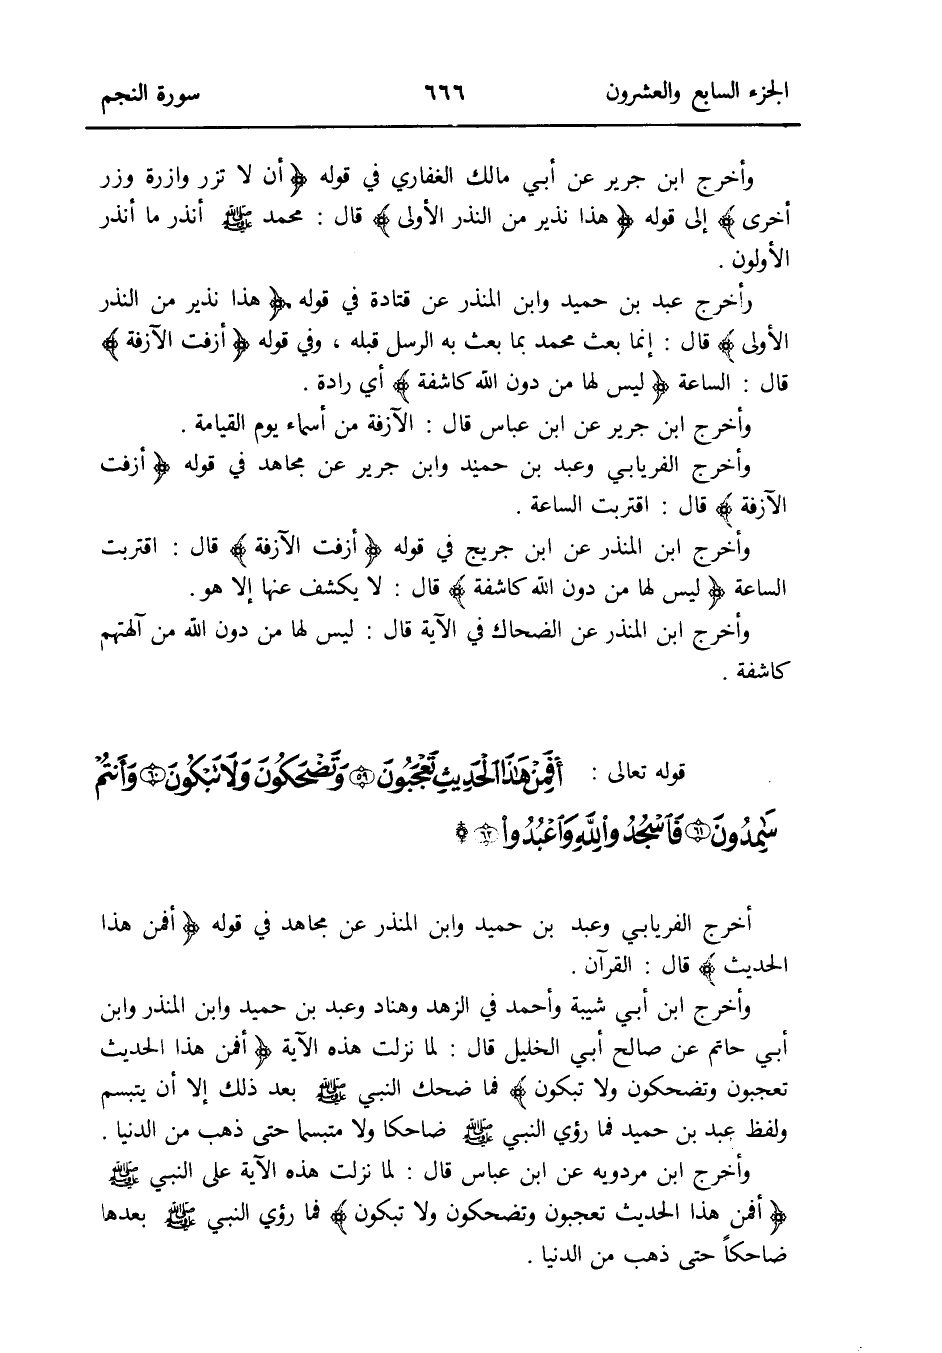 الجزء السابع والعشرون ٦٦٦ سورة النجم
وأخرج ابن جرير عن أبي مالك الغفاري في قوله ﴿ أن لا تزر وازرة وزر
أخرى ﴾ إلى قوله ﴿ هذا نذير من النذر الأولى ﴾ قال : محمد ﷺ أنذر ما أنذر
الأولون .
وأخرج عبد بن حميد وابن المنذر عن قتادة في قوله ﴿ هذا نذير من النذر
الأولى ﴾ قال : إنما بعث محمد بما بعث به الرسل قبله ، وفي قوله ﴿ أزفت الآزفة ﴾
قال : الساعة ﴿ ليس لها من دون الله كاشفة ﴾ أي رادة .
وأخرج ابن جرير عن ابن عباس قال : الآزفة من أسماء يوم القيامة .
وأخرج الفريابي وعبد بن حميد وابن جرير عن مجاهد في قوله ﴿ أزفت
الآزفة ﴾ قال : اقتربت الساعة .
وأخرج ابن المنذر عن ابن جريج في قوله ﴿ أزفت الآزفة ﴾ قال : اقتربت
الساعة ﴿ ليس لها من دون الله كاشفة ﴾ قال : لا يكشف عنها إلا هو .
وأخرج ابن المنذر عن الضحاك في الآية قال : ليس لها من دون الله من آلهتهم
كاشفة .
قوله تعالى : أَفَمِنْ هَٰذَا الْحَدِيثِ تَعْجَبُونَ ٥٩ وَتَضْحَكُونَ وَلَا تَبْكُونَ ٦٠ وَأَنتُمْ
سَٰمِدُونَ ٦١ فَاسْجُدُوا لِلَّهِ وَاعْبُدُوا ٦٢
أخرج الفريابي وعبد بن حميد وابن المنذر عن مجاهد في قوله ﴿ أفمن هذا
الحديث ﴾ قال : القرآن .
وأخرج ابن أبي شيبة وأحمد في الزهد وهناد وعبد بن حميد وابن المنذر وابن
أبي حاتم عن صالح أبي الخليل قال : لما نزلت هذه الآية ﴿ أفمن هذا الحديث
تعجبون وتضحكون ولا تبكون ﴾ فما ضحك النبي ﷺ بعد ذلك إلا أن يتبسم
ولفظ عبد بن حميد فما رؤي النبي ﷺ ضاحكا ولا متبسما حتى ذهب من الدنيا .
وأخرج ابن مردويه عن ابن عباس قال : لما نزلت هذه الآية على النبي ﷺ
﴿ أفمن هذا الحديث تعجبون وتضحكون ولا تبكون ﴾ فما رؤي النبي ﷺ بعدها
ضاحكاً حتى ذهب من الدنيا .